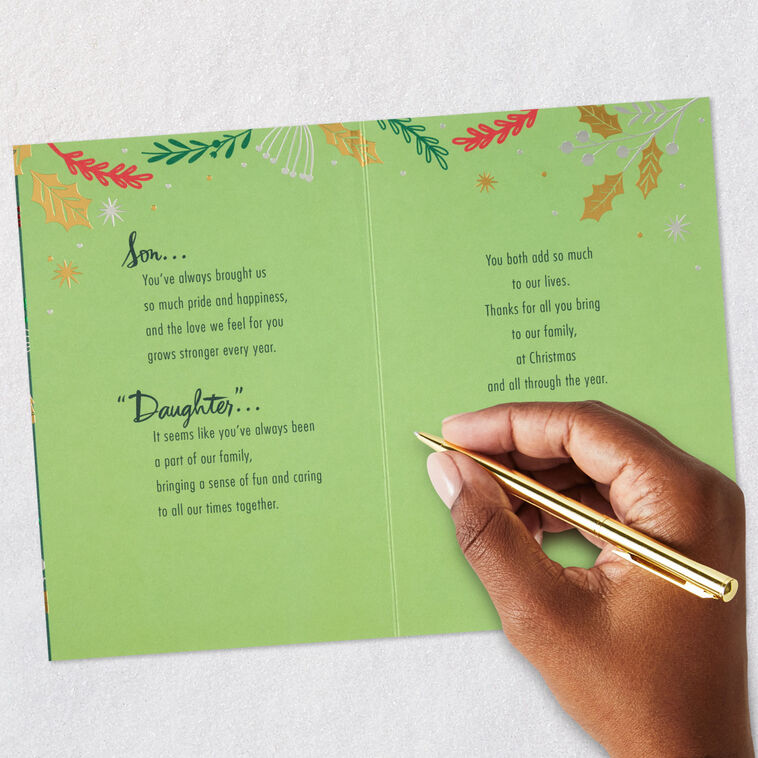 Son...
You've always brought us
so much pride and happiness,
and the love we feel for you
grows stronger every year.
"Daughter"...
It seems like you've always been
a part of our family,
bringing a sense of fun and caring
to all our times together.
You both add so much
to our lives.
Thanks for all you bring
to our family,
at Christmas
and all through the year.